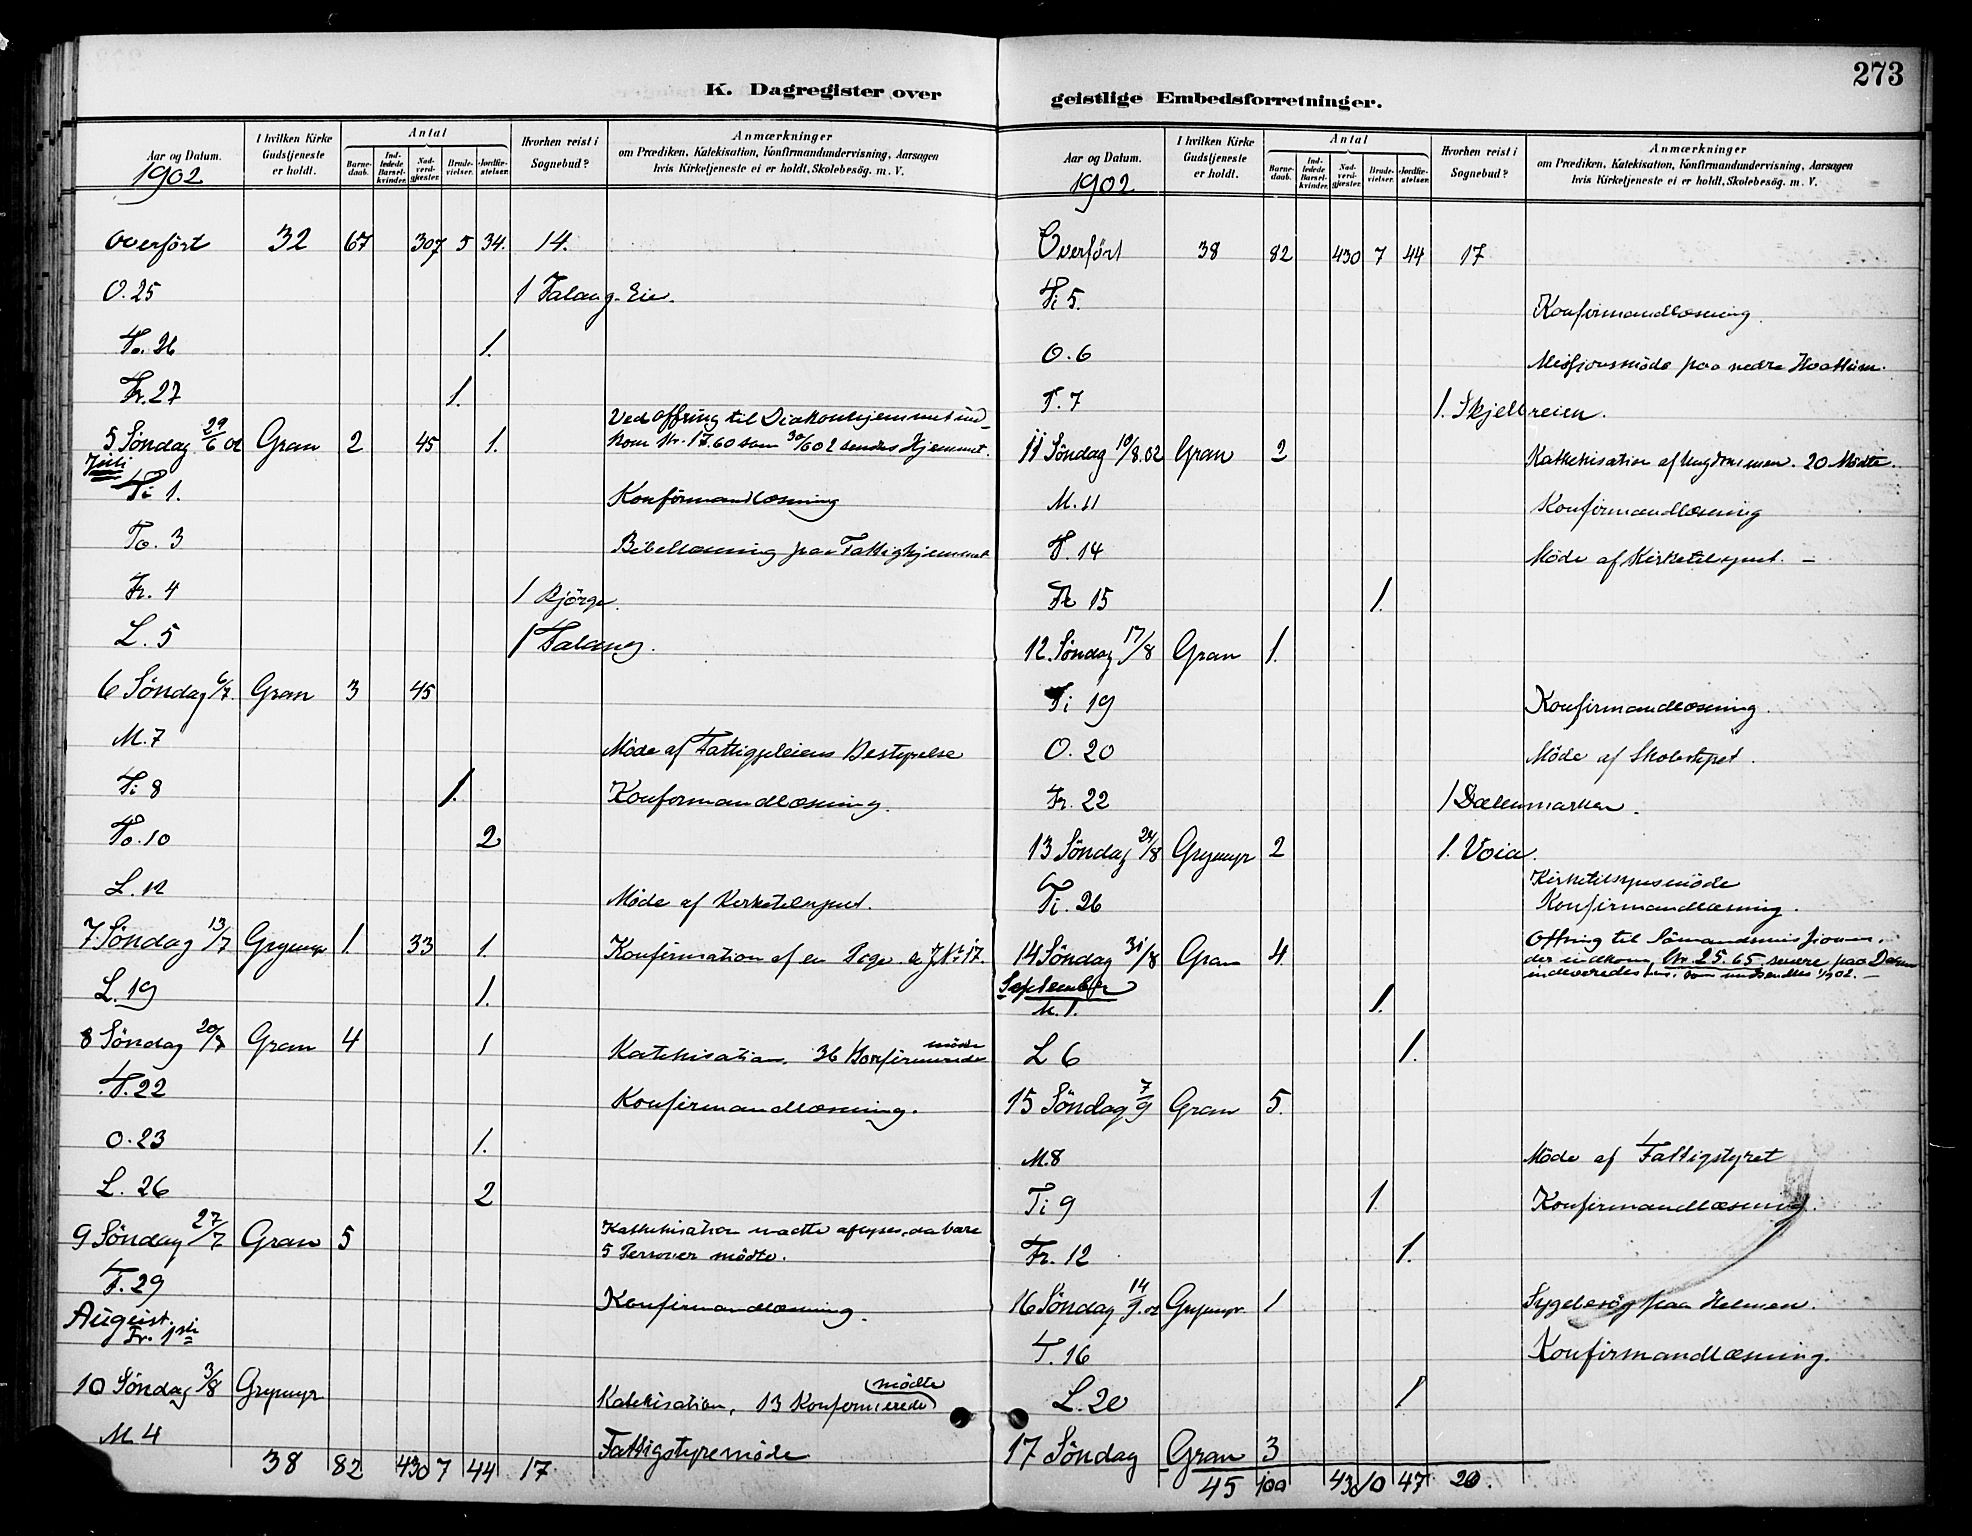 273
K. Dagregister over
Aar og Datum. 1902 | I hvilken Kirke Gudstjeneste er holdt. | Antal | Barne-daab. | Ind-ledede Barsel-kvinder. | Nad-verd-gjester. | Brude-vielser. | Jordfæ-stelser. | Hvorhen reist i Sognebud? | Anmærkninger om Prædiken, Katekisation, Konfirmandundervisning, Aarsagen hvis Kirketjeneste ei er holdt, Skolebesög. m. V.
Overført 32 67 307 5 34. 14.
O. 25 1 Falang-Eie.
To. 26 1.
Fr. 27 1.
Ved Offring til Diakonhjemmet ind-
5 Søndag 29/6 02 Gran 2 45 1. kom Kr. 17.60 som 30/6 02 sendes Hjemmet.
Juli
Ti 1. Konfirmandlæsning
To. 3 Bibellæsning paa Fattighjemmet
Fr. 4 1 Bjørge.
L. 5 1 Falang.
6 Søndag 6/7. Gran 3 45
M. 7 Møde af Fattigpleiens Bestyrelse
Ti 8 1. Konfirmandlæsning.
To. 10 2
L. 12 Møde af Kirketilsynet.
7. Søndag 13/7 Grymyr 1. 33 1. Konfirmation af en Pige
L. 19 1.
8 Søndag 20/7 Gran 4 1 Katekisation. 36 Konfirmerede mødte
T. 22 Konfirmandlæsning.
O. 23 1.
L. 26 2
9 Søndag 27/7 Gran 5 Kathekisation maatte aflyses, da bare
5 Personer mødte.
T. 29 Konfirmandlæsning.
August.
Fr. 1ste
10 Søndag 3/8 Grymyr Katekisation, 13 Konfirmerede mødte
M 4 Fattigstyremøde
38 82 430 7 44 17.
geistlige Embedsforretninger.
Aar og Datum. 1902 | I hvilken Kirke Gudstjeneste er holdt. | Antal | Barne-daab. | Ind-ledede Barsel-kvinder. | Nad-verd-gjester. | Brude-vielser. | Jordfæ-stelser. | Hvorhen reist i Sognebud? | Anmærkninger om Prædiken, Katekisation, Konfirmandundervisning, Aarsagen hvis Kirketjeneste ei er holdt, Skolebesög. m. V.
Overført 38 82 430 7 44 17
Ti 5. Konfirmandlæsning.
O. 6 Missionsmøde paa nedre Hvattum.
T. 7 1. Skjelbreien.
11 Søndag 10/8.02 Gran 2 Kathekisation af Ungdommen. 20 Mødte.
M. 11 Konfirmandlæsning
T. 14 Møde af Kirketilsynet. –
Fr 15 1.
12. Søndag 17/8 Gran 1.
Ti 19 Konfirmandlæsning.
O. 20 Møde af Skolestyret.
Fr. 22 1 Dællenmarken.
13 Søndag 24/8 Grymyr 2 1. Voia.
Kirketilsynsmøde
Ti. 26 Konfirmandlæsning.
14 Søndag 31/8 Gran 4 Offring til Sømandsmissionen,
der indkom Kr. 25.65, senere paa Dagen
September
M. 1. 1.
L 6 1.
15 Søndag 7/9 Gran 5.
M. 8 Møde af Fattigstyret
Ti 9 1. Konfirmandlæsning.
Fr. 12 1.
16 Søndag 14/9.02 Grymyr. 1 Sygebesøg paa Helmen.
T. 16 Konfirmandlæsning.
L. 20 1
17 Søndag Gran 3
45 100 430 10 47 20.